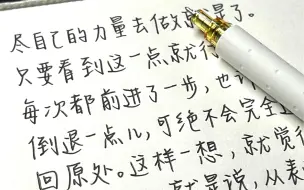 尽自己的力量去做就是了。
只要看到这一点就行
每次都前进了一步，也
倒退一点儿，可绝不会完全
回原处。这样一想，就觉
就是说，从表